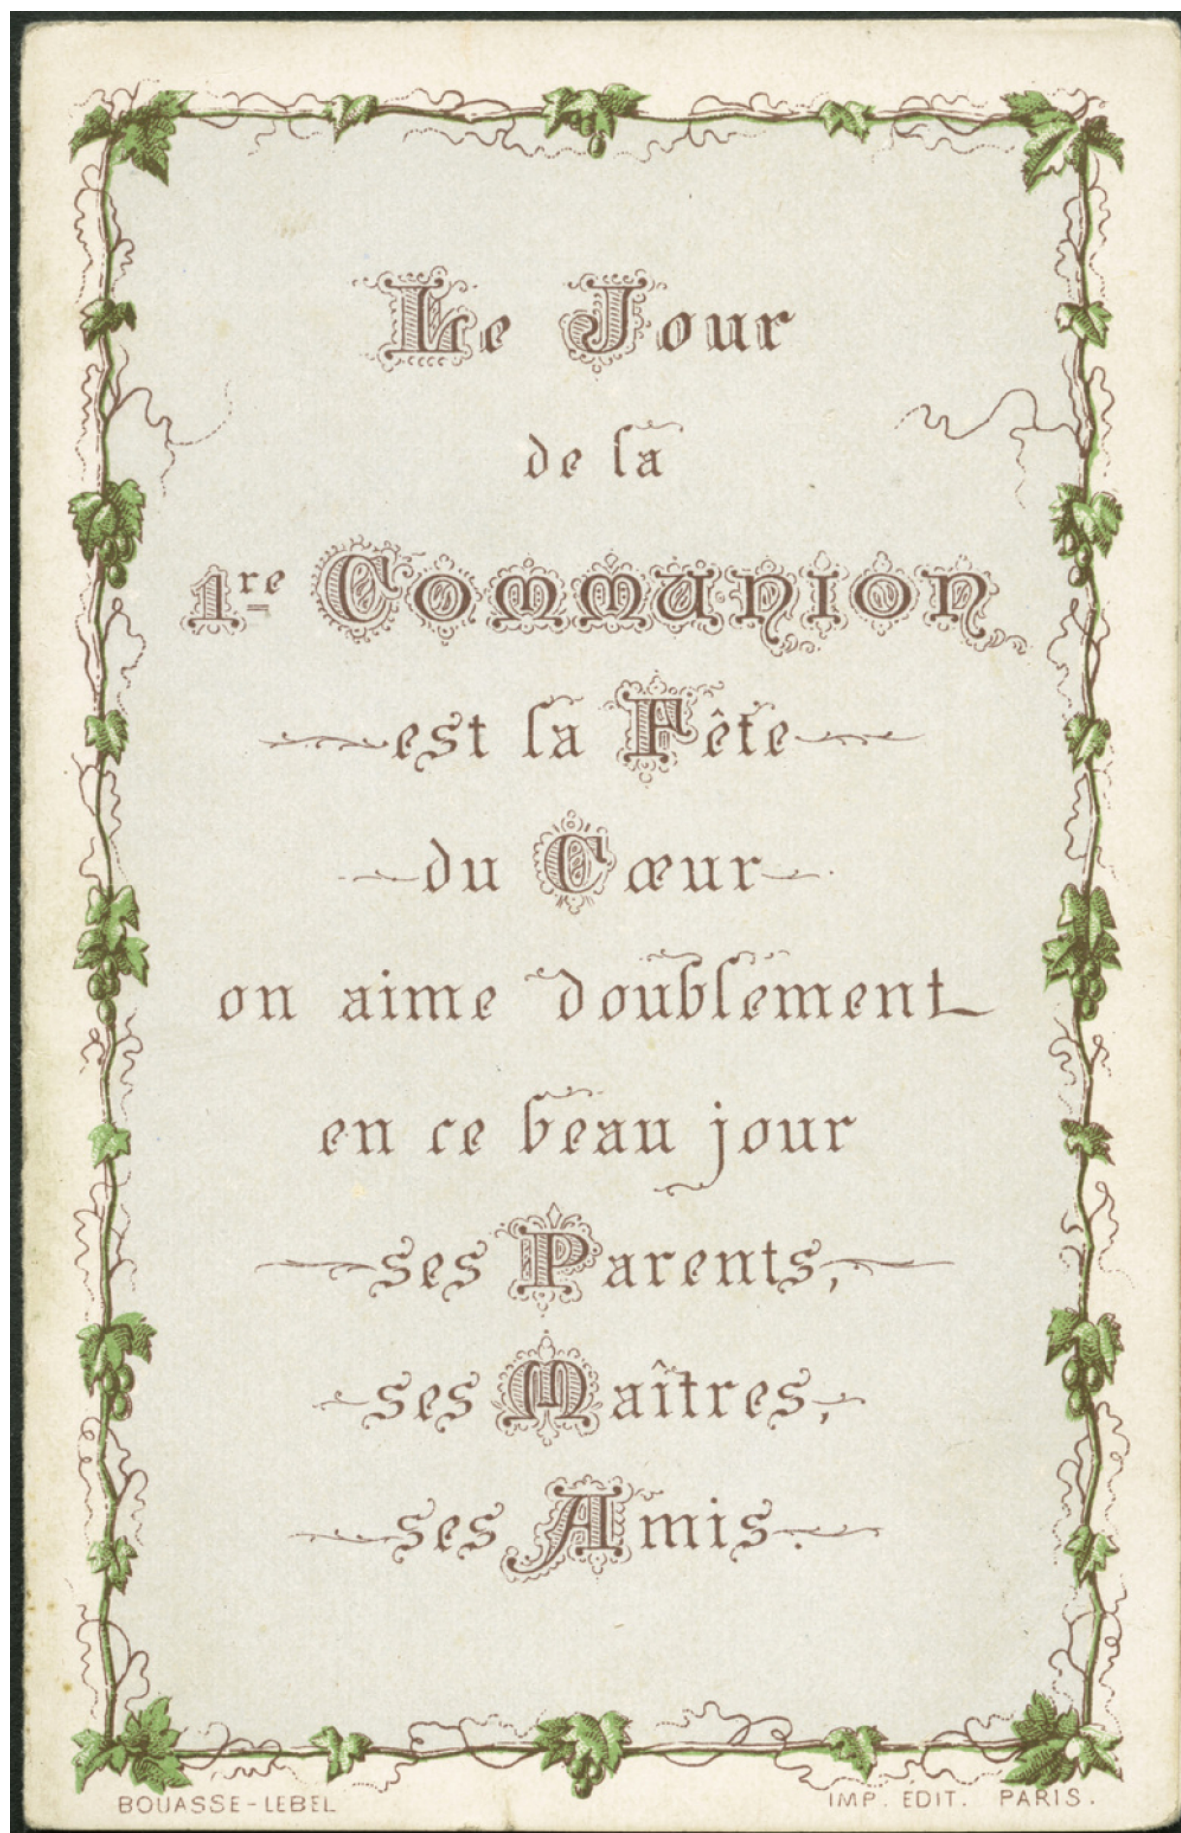 Le Jour
de la
1re Communion
est la Fête
du Cœur
on aime doublement
en ce beau jour
ses Parents,
ses Maîtres,
ses Amis.
BOUASSE-LEBEL IMP. EDIT. PARIS.